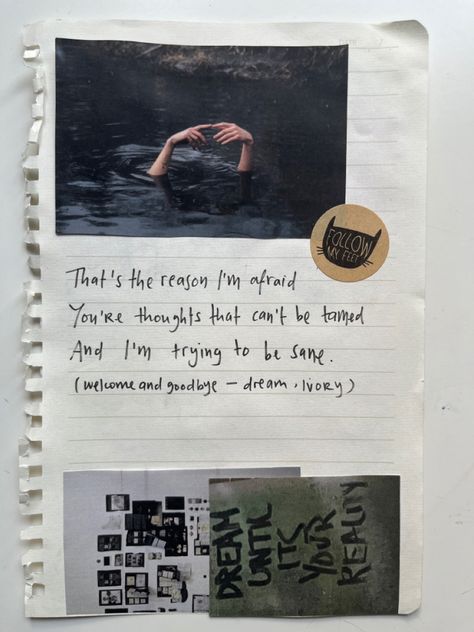 FOLLOW
MY FEET
That's the reason I'm afraid
You're thoughts that can't be tamed
And I'm trying to be sane.
(welcome and goodbye – dream, ivory)
DREAM
UNTIL
ITS
YOUR
REALITY